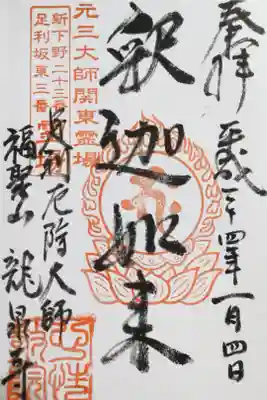 奉拝
平成二十四年一月四日
釈迦如来
元三大師関東霊場
新下野三十三番
足利坂東三番
足利厄除大師
福聚山
龍泉寺